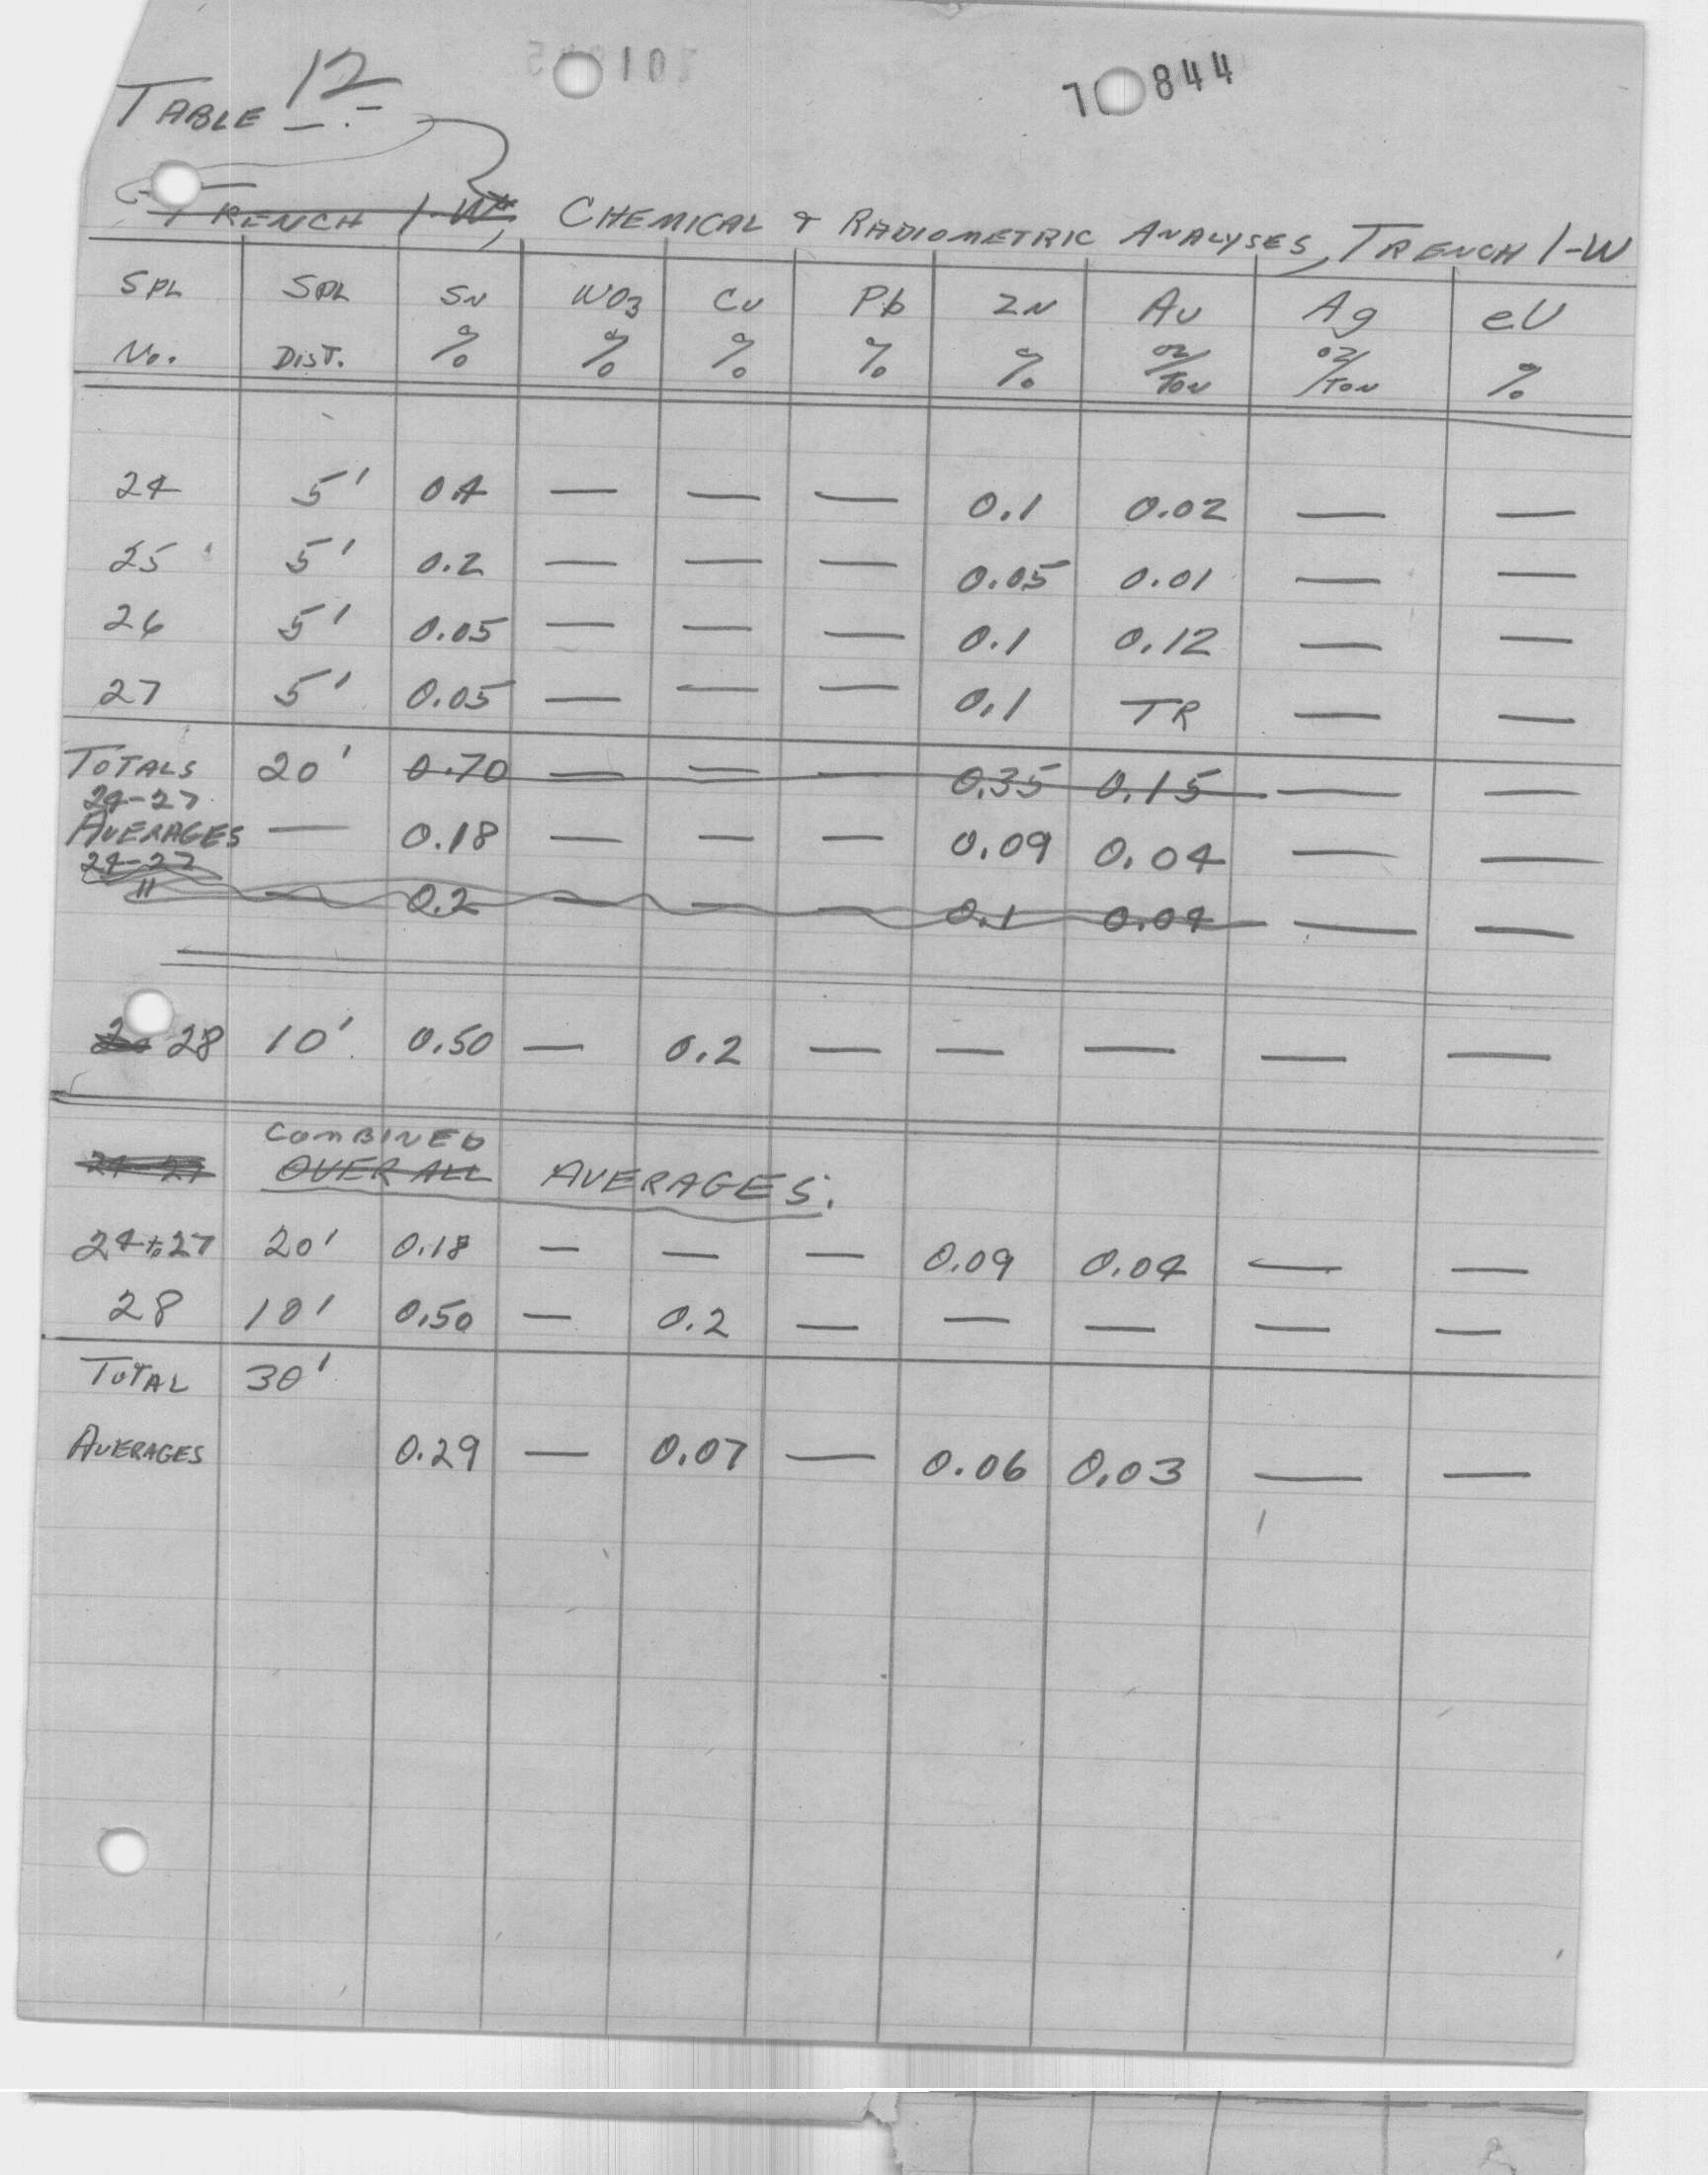 844
TABLE 12
TRENCH 1-W, CHEMICAL & RADIOMETRIC ANALYSES, TRENCH 1-W
SPL SPL SN WO3 CU Pb ZN AU Ag eU
No. DIST. % % % % % oz/TON oz/TON %
24 5' 0.4 — — — 0.1 0.02 — —
25 5' 0.2 — — — 0.05 0.01 — —
26 5' 0.05 — — — 0.1 0.12 — —
27 5' 0.05 — — — 0.1 TR — —
TOTALS 20' 0.70 — — — 0.35 0.15 — —
24-27
AVERAGES — 0.18 — — — 0.09 0.04 — —
24-27
" — 0.2 — — — 0.1 0.04 — —
28 10' 0.50 — 0.2 — — — — —
COMBINED
OVER ALL AVERAGES:
24 to 27 20' 0.18 — — — 0.09 0.04 — —
28 10' 0.50 — 0.2 — — — — —
TOTAL 30'
AVERAGES 0.29 — 0.07 — 0.06 0.03 — —